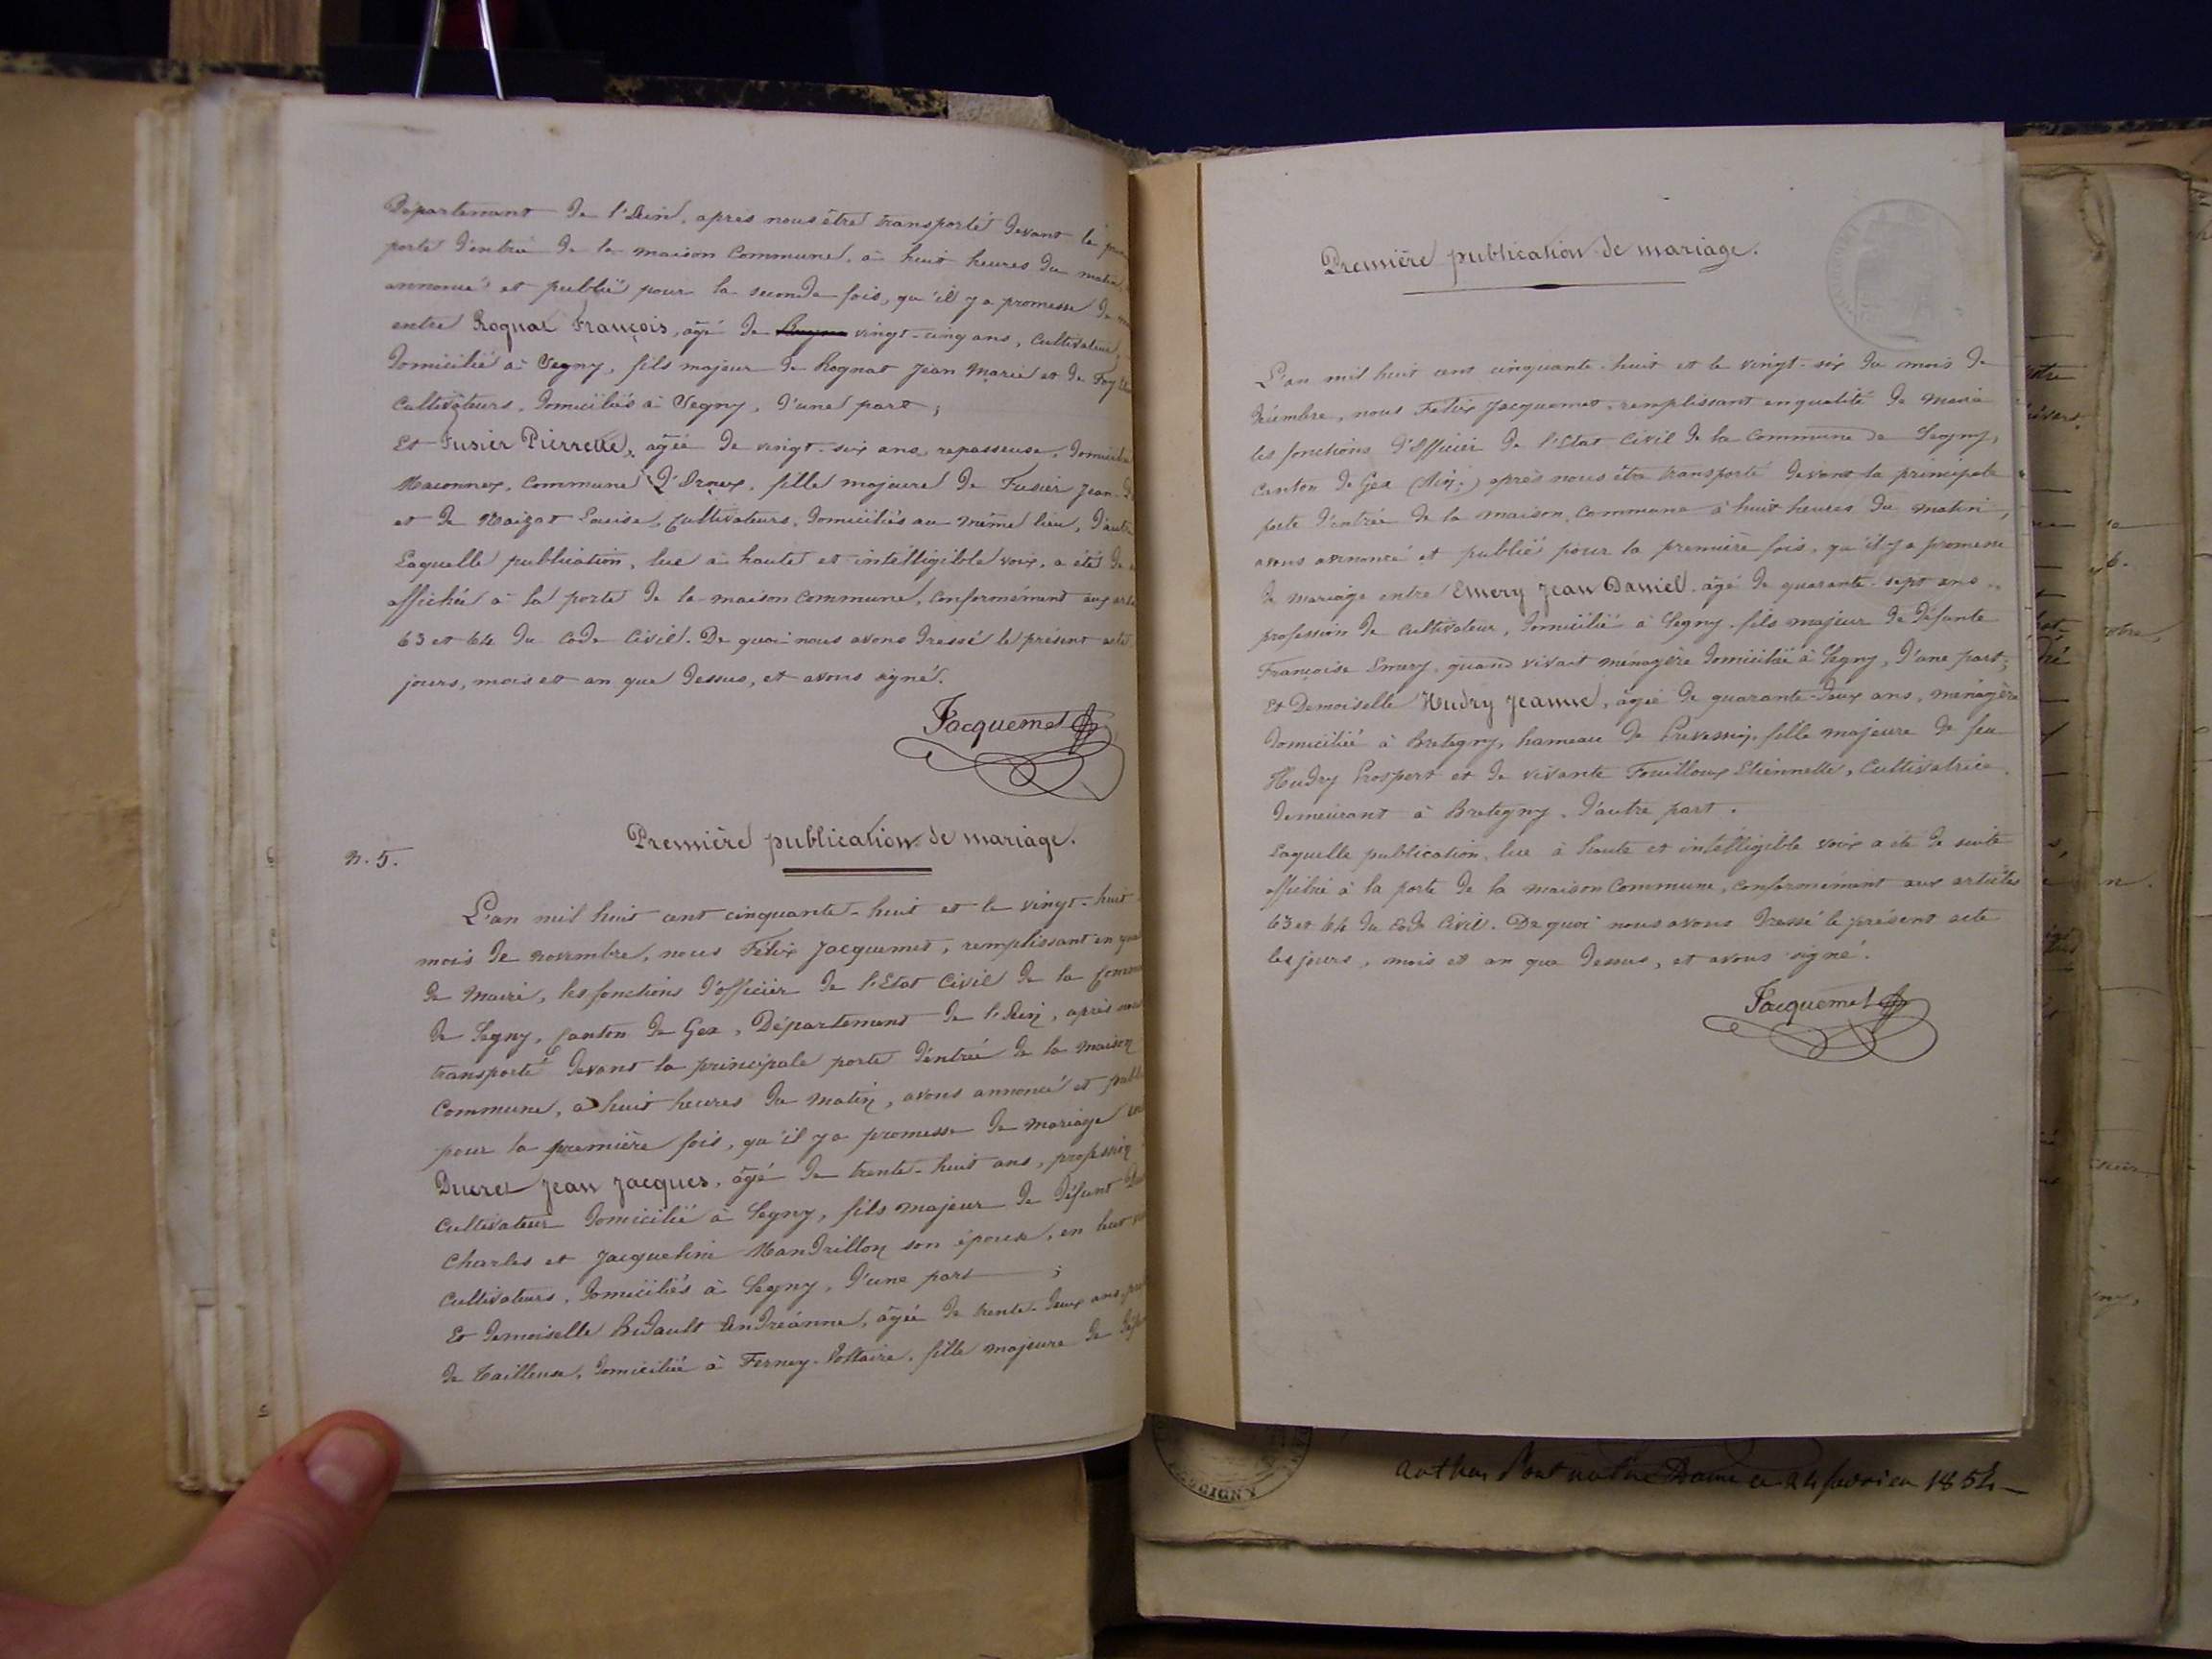 Département de l'Ain, après nous être transporté devant la
porte d'entrée de la maison Commune, à huit heures du matin,
annoncé et publié pour la seconde fois, qu'il y a promesse de
entre Rognat François, âgé de vingt-cinq ans, Cultivateur,
domicilié à Segny, fils majeur de Rognat Jean Marie et de
Cultivateurs, domiciliés à Segny, d'une part ;
Et Fusier Pierrette, âgée de vingt-six ans, repasseuse,
Maconnex, Commune d'Ornex, fille majeure de Fusier Jean
et de Louise, Cultivateurs, domiciliés au même lieu,
Laquelle publication, lue à haute et intelligible voix, a été de
affichée à la porte de la maison commune, conformément aux
63 et 64 du Code Civil. De quoi nous avons dressé le présent acte
jours, mois et an que dessus, et avons signé.
Jacquemet
Première publication de mariage.
n. 5.
L'an mil huit cent cinquante-huit et le vingt-huit
mois de novembre, nous Félix Jacquemet, remplissant en
de Maire, les fonctions d'officier de l'Etat Civil de la
de Segny, Canton de Gex, Département de l'Ain, après
transporté devant la principale porte d'entrée de la maison
Commune, à huit heures du matin, avons annoncé et
pour la première fois, qu'il y a promesse de mariage
Ducret Jean Jacques, âgé de trente-huit ans, profession
Cultivateur domicilié à Segny, fils majeur de défunt
Charles et Jacqueline Mandrillon son épouse, en leur
Cultivateurs, domiciliés à Segny, d'une part ;
Et demoiselle Bidault Andréanne, âgée de trente-deux ans,
de tailleuse, domiciliée à Ferney-Voltaire, fille majeure de
Première publication de mariage.
L'an mil huit cent cinquante-huit et le vingt-six du mois de
décembre, nous Félix Jacquemet, remplissant en qualité de Maire
les fonctions d'Officier de l'Etat Civil de la Commune de Segny,
Canton de Gex (Ain,) après nous être transporté devant la principale
porte d'entrée de la maison Commune à huit heures du matin,
avons annoncé et publié pour la première fois, qu'il y a promesse
de mariage entre Emery Jean Daniel, âgé de quarante-sept ans
profession de Cultivateur, domicilié à Segny, fils majeur de défunte
Françoise Emery, quand vivait ménagère domiciliée à Segny, d'une part ;
Et Demoiselle Hudry Jeanne, âgée de quarante-deux ans, ménagère
domiciliée à Bretegny, hameau de Prevessin, fille majeure de feu
Hudry Prospert et de vivante Fouilloux Etiennette, Cultivatrice,
demeurant à Bretegny, d'autre part.
Laquelle publication, lue à haute et intelligible voix a été de suite
affichée à la porte de la maison Commune, conformément aux articles
63 et 64 du Code Civil. De quoi nous avons dressé le présent acte
les jours, mois et an que dessus, et avons signé.
Jacquemet
ce 24 fevrier 1854